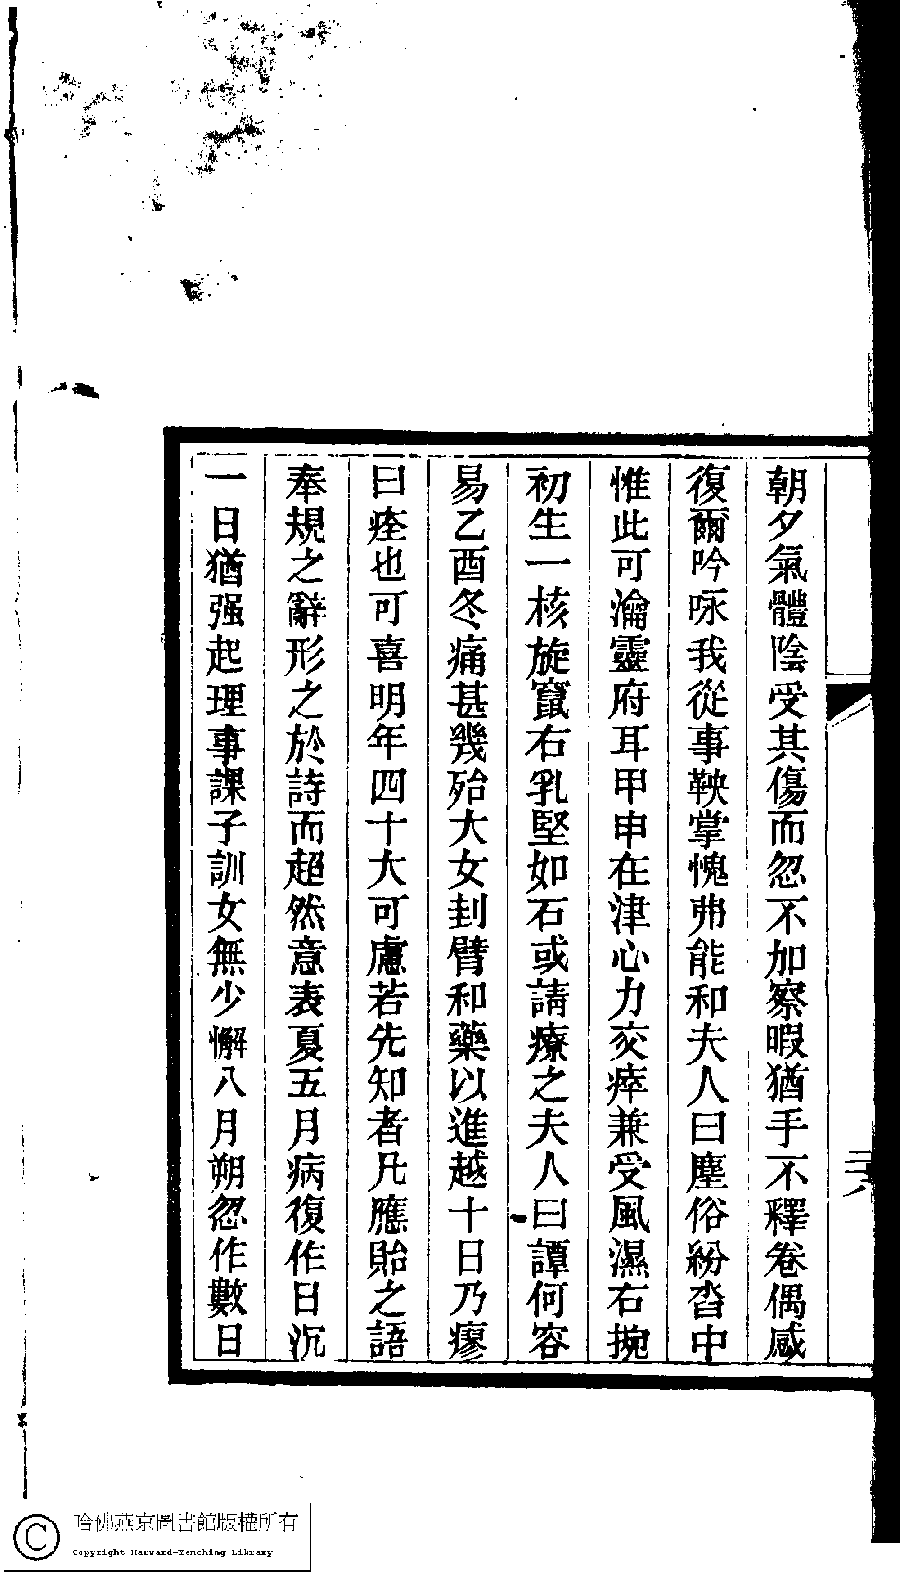 朝夕氣體陰受其傷而忽不加察暇猶手不釋卷偶感
復爾吟咏我從事鞅掌愧弗能和夫人曰塵俗紛沓中
惟此可瀹靈府耳甲申在津心力交瘁兼受風濕右掔
初生一核旋竄右乳堅如石或請療之夫人曰譚何容
易乙酉冬痛甚幾殆大女刲臂和藥以進越十日乃瘳
曰痊也可喜明年四十大可慮若先知者凡應貽之語
奉規之辭形之於詩而超然意表夏五月病復作日沉
一日猶强起理事課子訓女無少懈八月朔忽作數日
哈佛燕京圖書館版權所有
Copyright Harvard-Yenching Library